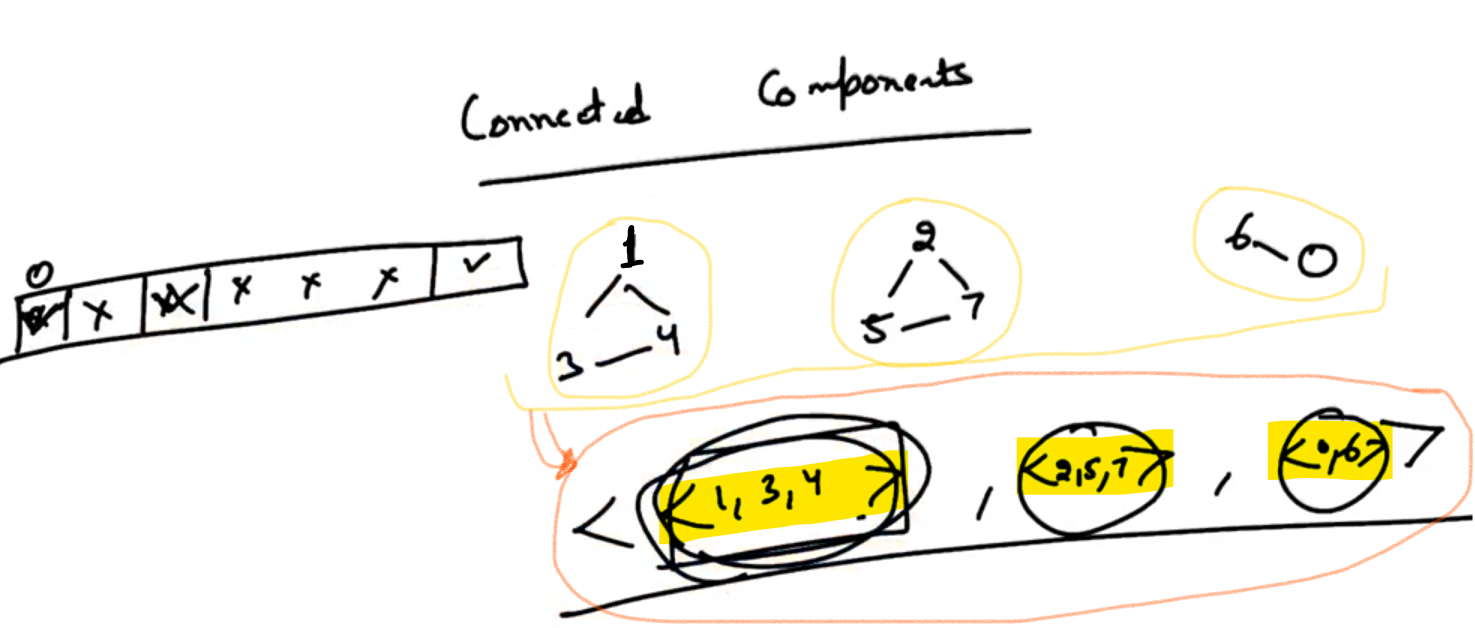 Connected Components
0
x x x x x x ✓
1
3 4
2
5 7
6 0
< <1, 3, 4> , <2,5,7> , <0,6> >